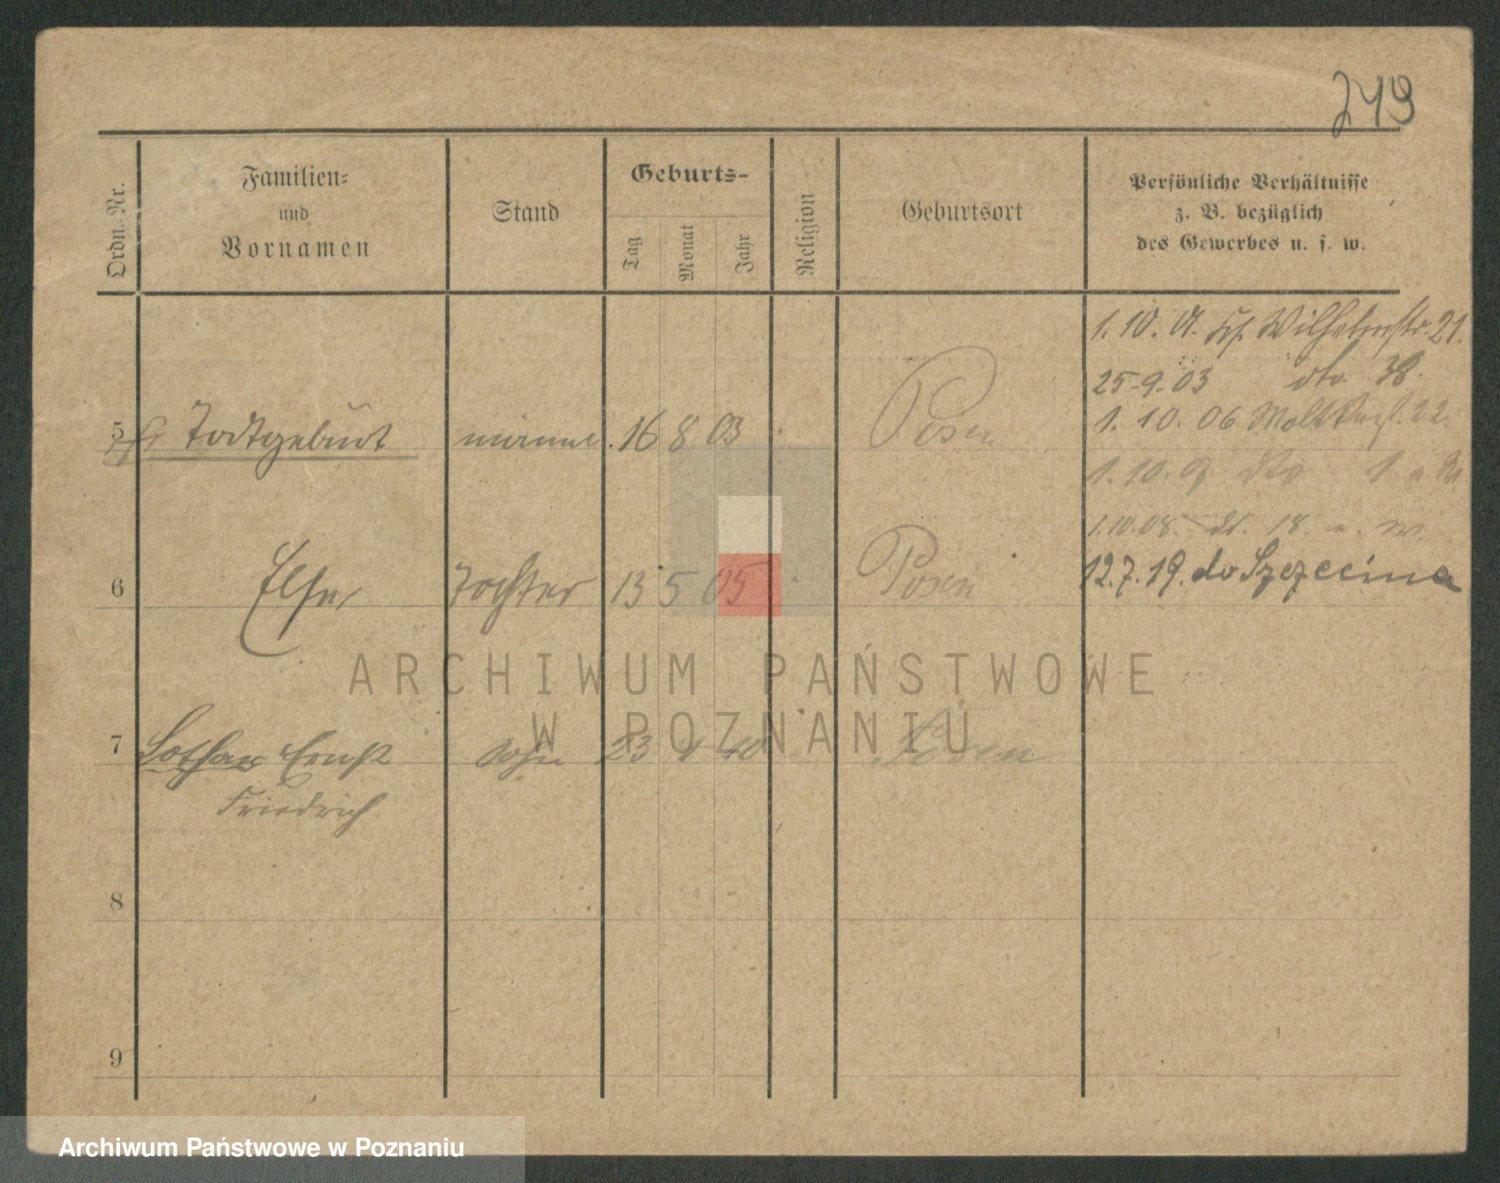 249
Ordn. Nr.
Familien-
und
Vornamen
Stand
Geburts-
Tag
Monat
Jahr
Religion
Geburtsort
Persönliche Verhältnisse
z. B. bezüglich
des Gewerbes u. s. w.
1. 10. Wilhelmstr. 21.
25-9.03 dto 38.
1. 10. 06 Moltkestr. 22
5 Todtgeburt männl. 16 8 03 Posen
1. 10. dto 1
1.10.08. 18.
12.7.19. do Szczecina
6 Else Tochter 13 5 05 Posen
ARCHIWUM PAŃSTWOWE
W POZNANIU
7 Lothar Ernst Sohn 23 Posen
Friedrich
8
9
Archiwum Państwowe w Poznaniu